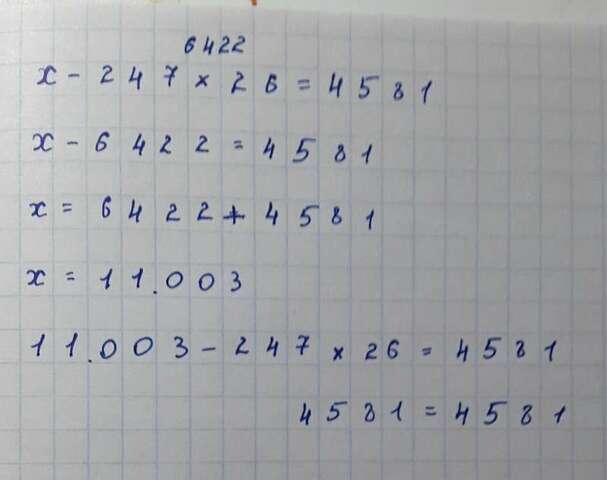 6422
x - 247 × 26 = 4581
x - 6422 = 4581
x = 6422 + 4581
x = 11.003
11.003 - 247 × 26 = 4581
4581 = 4581